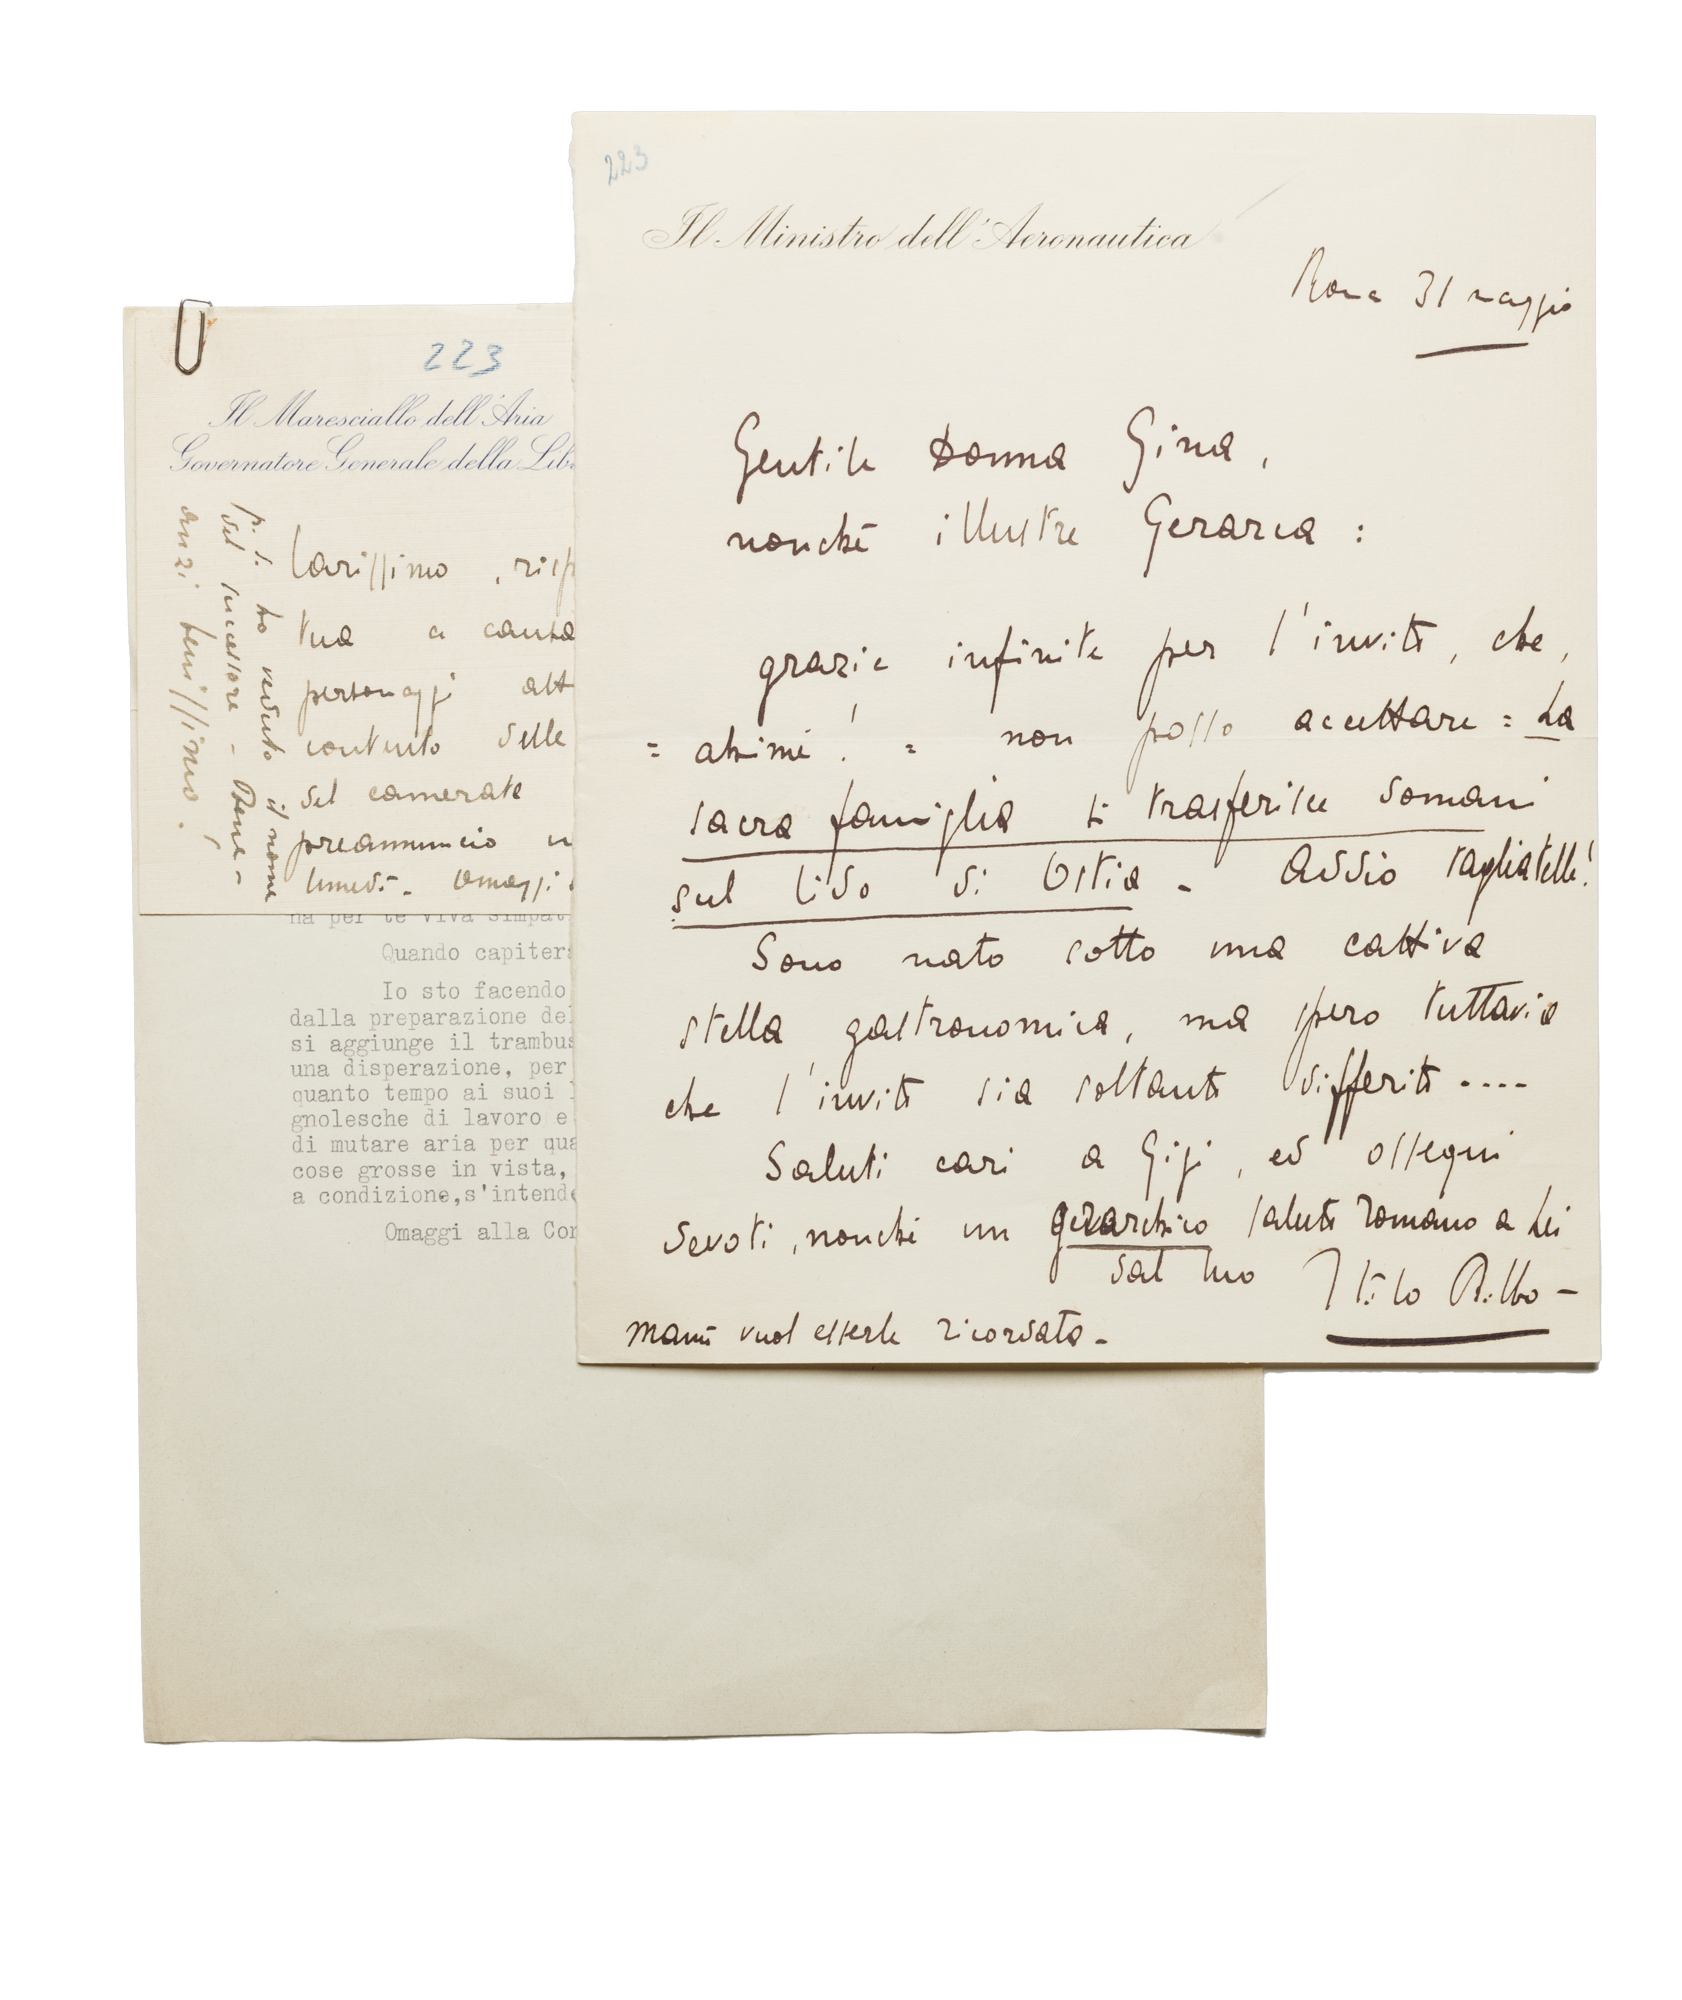 223
Il Ministro dell'Aeronautica
Roma 31 maggio
Gentile Donna Gina,
nonchè illustre Gerarca:
grazie infinite per l'invito, che,
= ahimè! = non posso accettare = La
sacra famiglia si trasferisce domani
sul lido di Ostia - Addio tagliatelle!
Sono nato sotto una cattiva
stella gastronomica, ma spero tuttavia
che l'invito sia soltanto differito ----
Saluti cari a Gigi, ed ossequi
devoti, nonchè un gerarchico saluto romano a Lei
dal suo Italo Balbo -
Manù vuol esserle ricordata -
223
Il Maresciallo dell'Aria
Governatore Generale della Lib
Carissimo, risp
tua a causa
personaggi att
contento delle
del camerate
preannuncio
lunedì - Omaggi
p. s. ho veduto il nome
del successore - Bene -
anzi benissimo!
na per te viva simpat
Quando capiter
Io sto facendo
dalla preparazione de
si aggiunge il trambus
una disperazione, per
quanto tempo ai suoi l
gnolesche di lavoro e
di mutare aria per qua
cose grosse in vista,
a condizione,s'intende
Omaggi alla Con